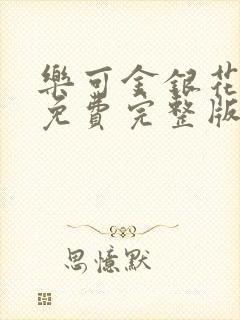 樂可金銀花
免費完整版
思憶默